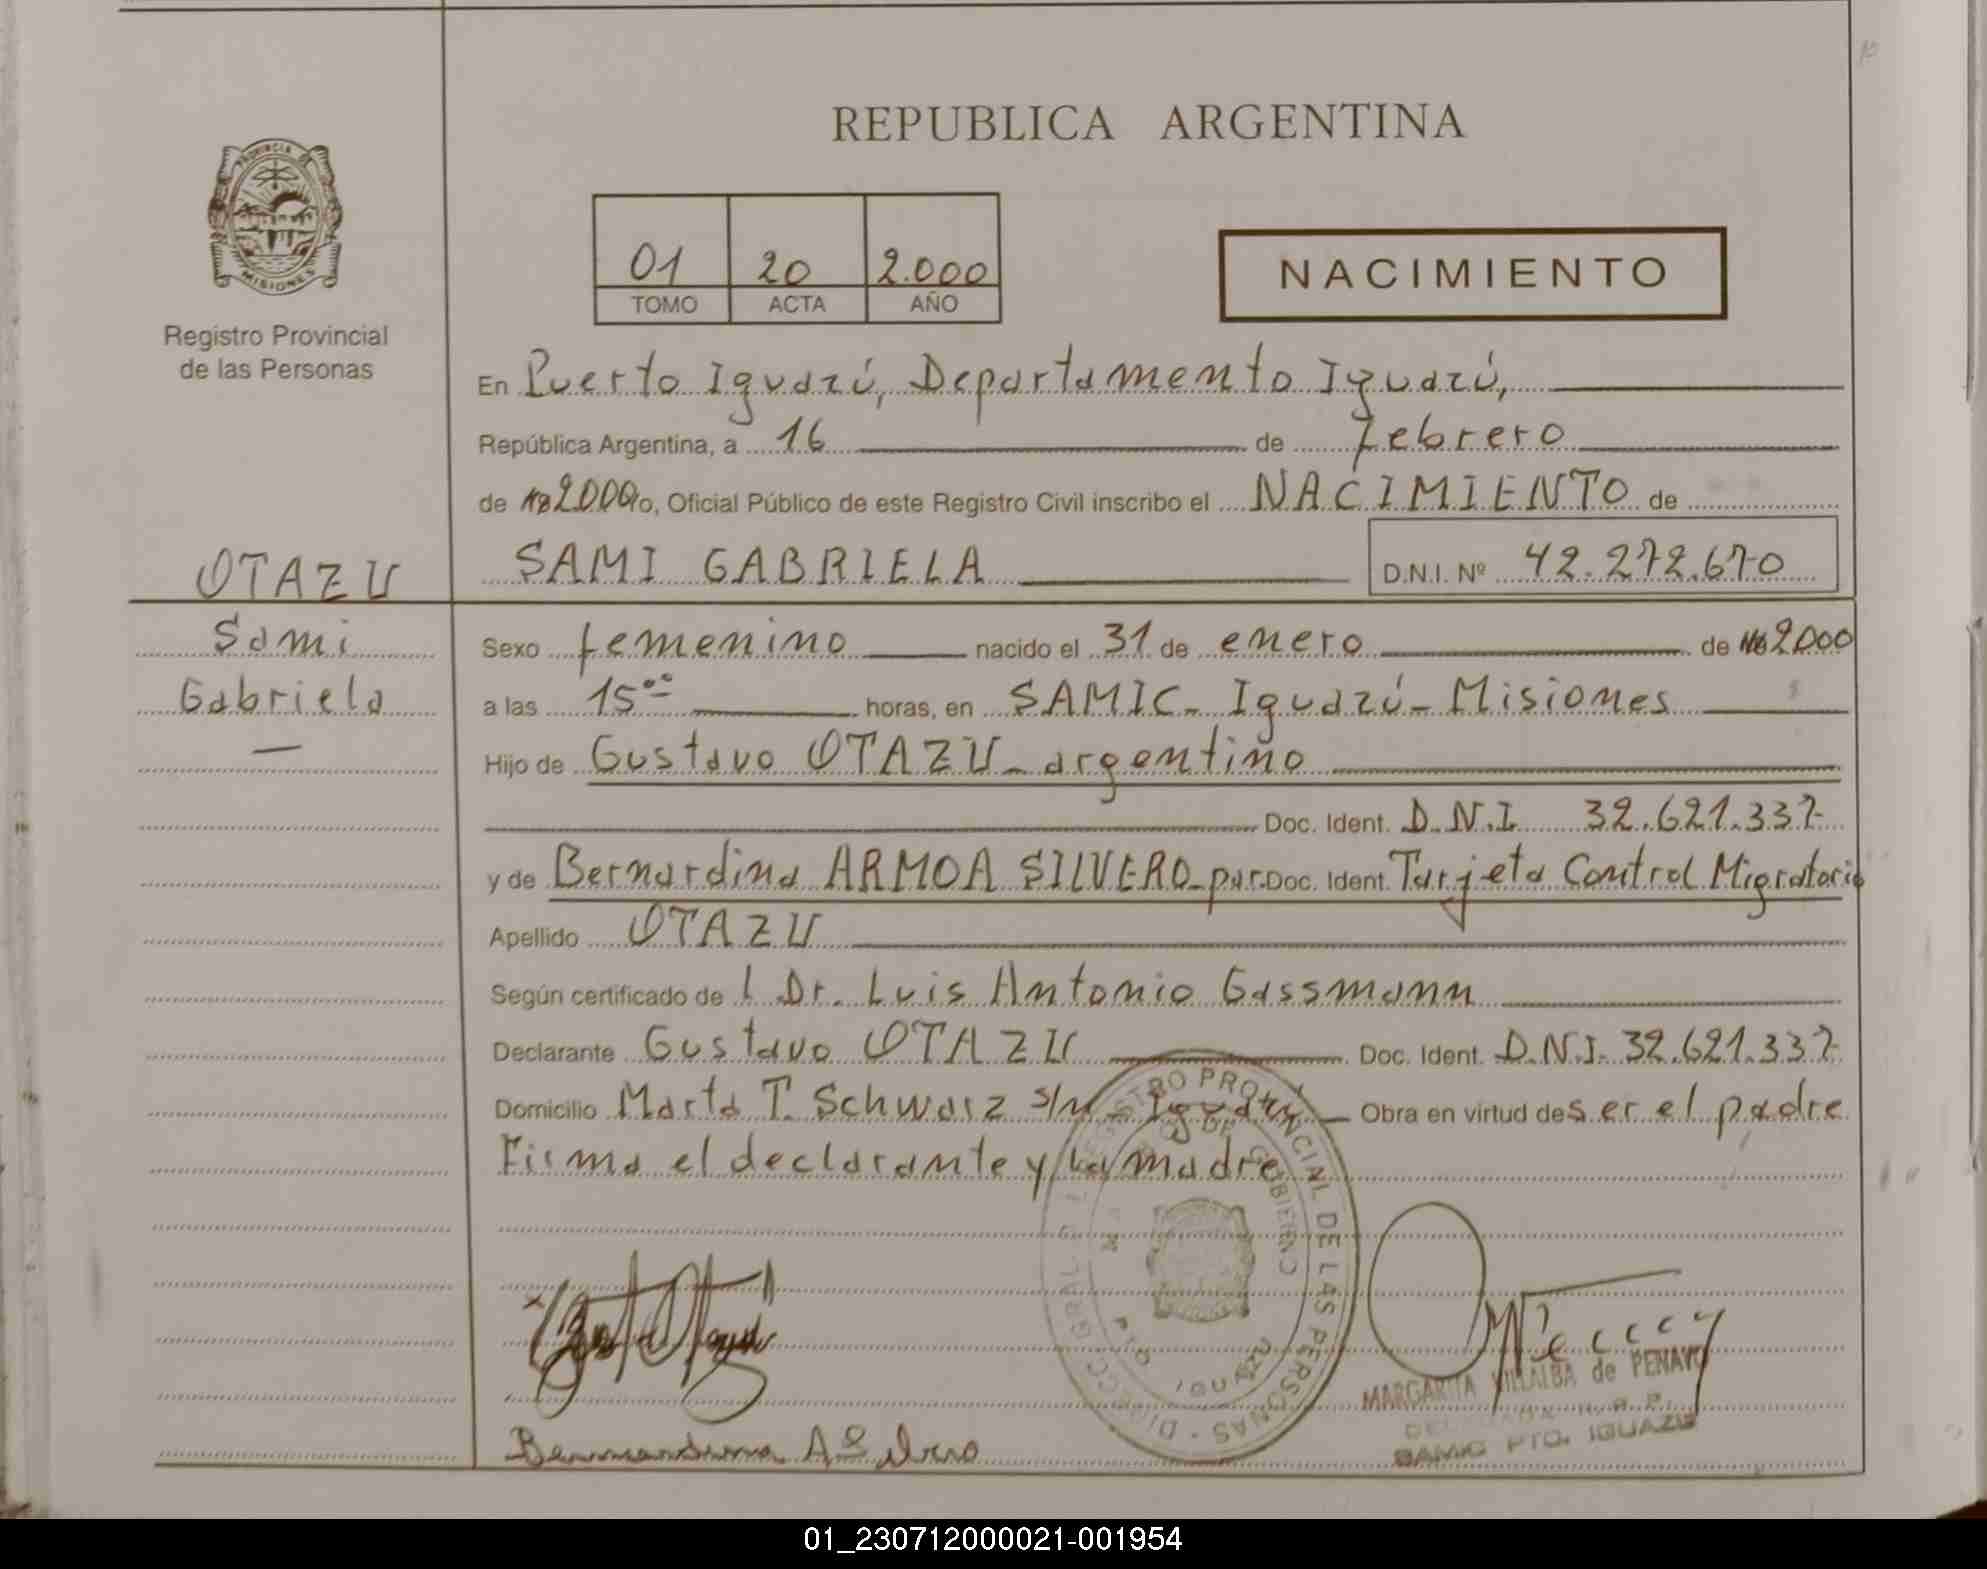 REPUBLICA ARGENTINA
PROVINCIA DE
MISIONES
Registro Provincial
de las Personas
01 20 2.000
TOMO ACTA AÑO
NACIMIENTO
En Puerto Iguazú, Departamento Iguazú,
República Argentina, a 16 de Febrero
de 2000 o, Oficial Público de este Registro Civil inscribo el NACIMIENTO de
SAMI GABRIELA D.N.I. Nº 42.272.670
OTAZU
Sami
Gabriela
Sexo femenino nacido el 31 de enero de 2000
a las 15ºº horas, en SAMIC - Iguazú - Misiones
Hijo de Gustavo OTAZU - argentino
Doc. Ident. D.N.I 32.621.337
y de Bernardina ARMOA SILVERO - par. Doc. Ident. Tarjeta Control Migratorio
Apellido OTAZU
Según certificado de l Dr. Luis Antonio Gassmann
Declarante Gustavo OTAZU Doc. Ident. D.N.I. 32.621.337
Domicilio Marta T. Schwarz s/n - Iguazú Obra en virtud de ser el padre
Firma el declarante y la madre
REGISTRO PROVINCIAL DE LAS PERSONAS - DIRECC GRAL
GOBIERNO
IGUAZU
MARGARITA VILLALBA de PENAYO
SAMIC PTO. IGUAZU
01_230712000021-001954